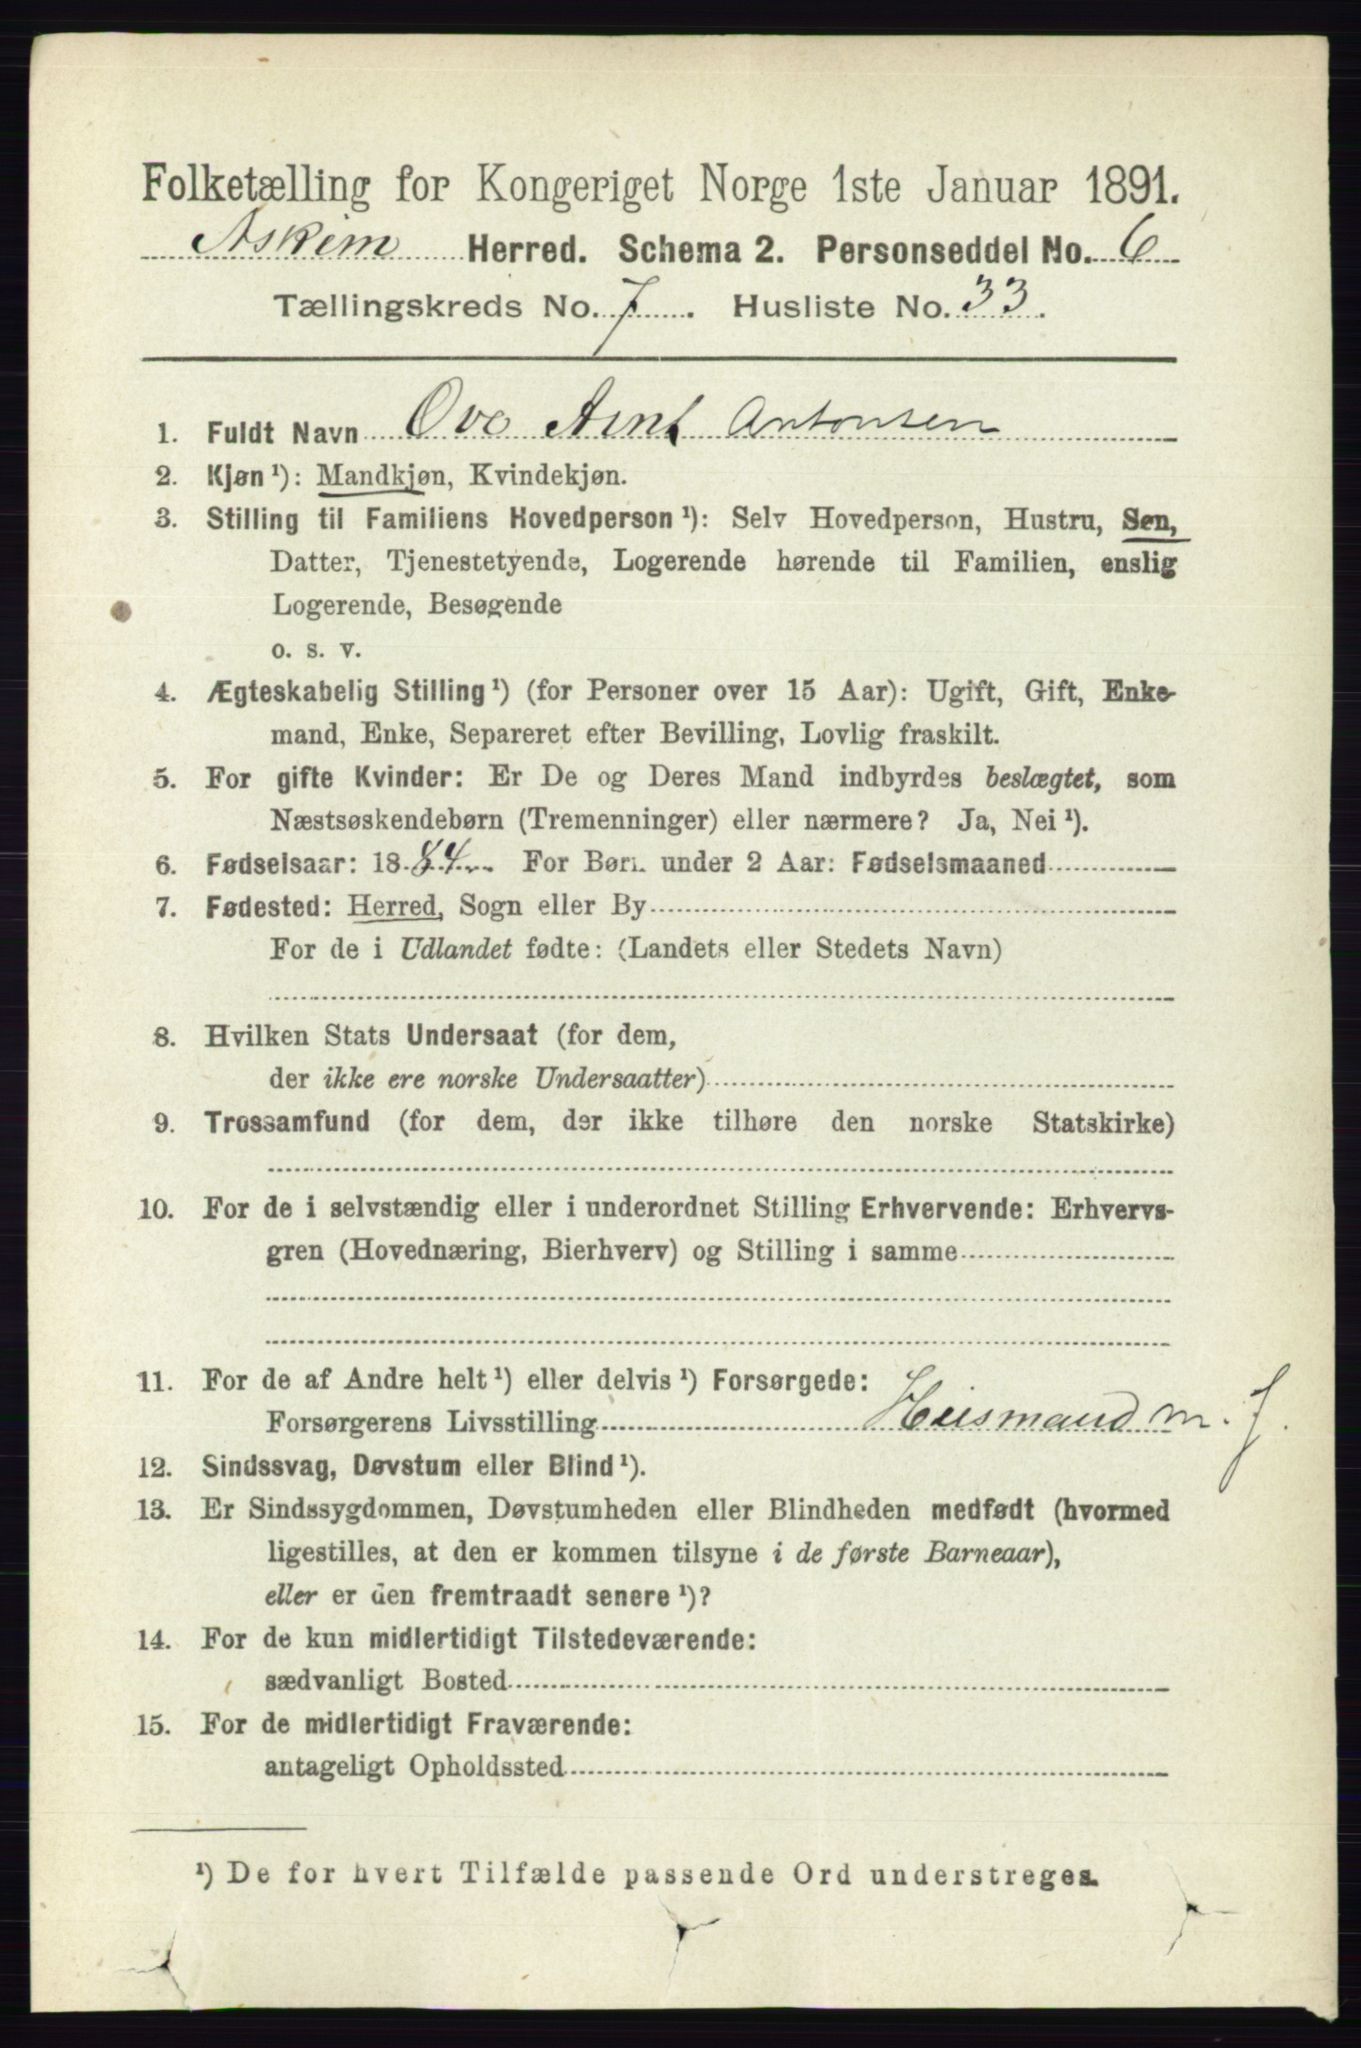 Folketælling for Kongeriget Norge 1ste Januar 1891.
Askim Herred. Schema 2. Personseddel No. 6
Tællingskreds No. 7. Husliste No. 33.
1. Fuldt Navn Ove Arnt Antonsen
2. Kjøn ¹): Mandkjøn, Kvindekjøn.
3. Stilling til Familiens Hovedperson ¹): Selv Hovedperson, Hustru, Søn,
Datter, Tjenestetyende, Logerende hørende til Familien, enslig
Logerende, Besøgende
o. s. v.
4. Ægteskabelig Stilling ¹) (for Personer over 15 Aar): Ugift, Gift, Enke-
mand, Enke, Separeret efter Bevilling, Lovlig fraskilt.
5. For gifte Kvinder: Er De og Deres Mand indbyrdes beslægtet, som
Næstsøskendebørn (Tremenninger) eller nærmere? Ja, Nei ¹).
6. Fødselsaar: 1884 For Børn under 2 Aar: Fødselsmaaned
7. Fødested: Herred, Sogn eller By
For de i Udlandet fødte: (Landets eller Stedets Navn)
8. Hvilken Stats Undersaat (for dem,
der ikke ere norske Undersaatter)
9. Trossamfund (for dem, der ikke tilhøre den norske Statskirke)
10. For de i selvstændig eller i underordnet Stilling Erhvervende: Erhvervs-
gren (Hovednæring, Bierhverv) og Stilling i samme
11. For de af Andre helt ¹) eller delvis ¹) Forsørgede:
Forsørgerens Livsstilling Husmand m. J.
12. Sindssvag, Døvstum eller Blind ¹).
13. Er Sindssygdommen, Døvstumheden eller Blindheden medfødt (hvormed
ligestilles, at den er kommen tilsyne i de første Barneaar),
eller er den fremtraadt senere ¹)?
14. For de kun midlertidigt Tilstedeværende:
sædvanligt Bosted
15. For de midlertidigt Fraværende:
antageligt Opholdssted
¹) De for hvert Tilfælde passende Ord understreges.